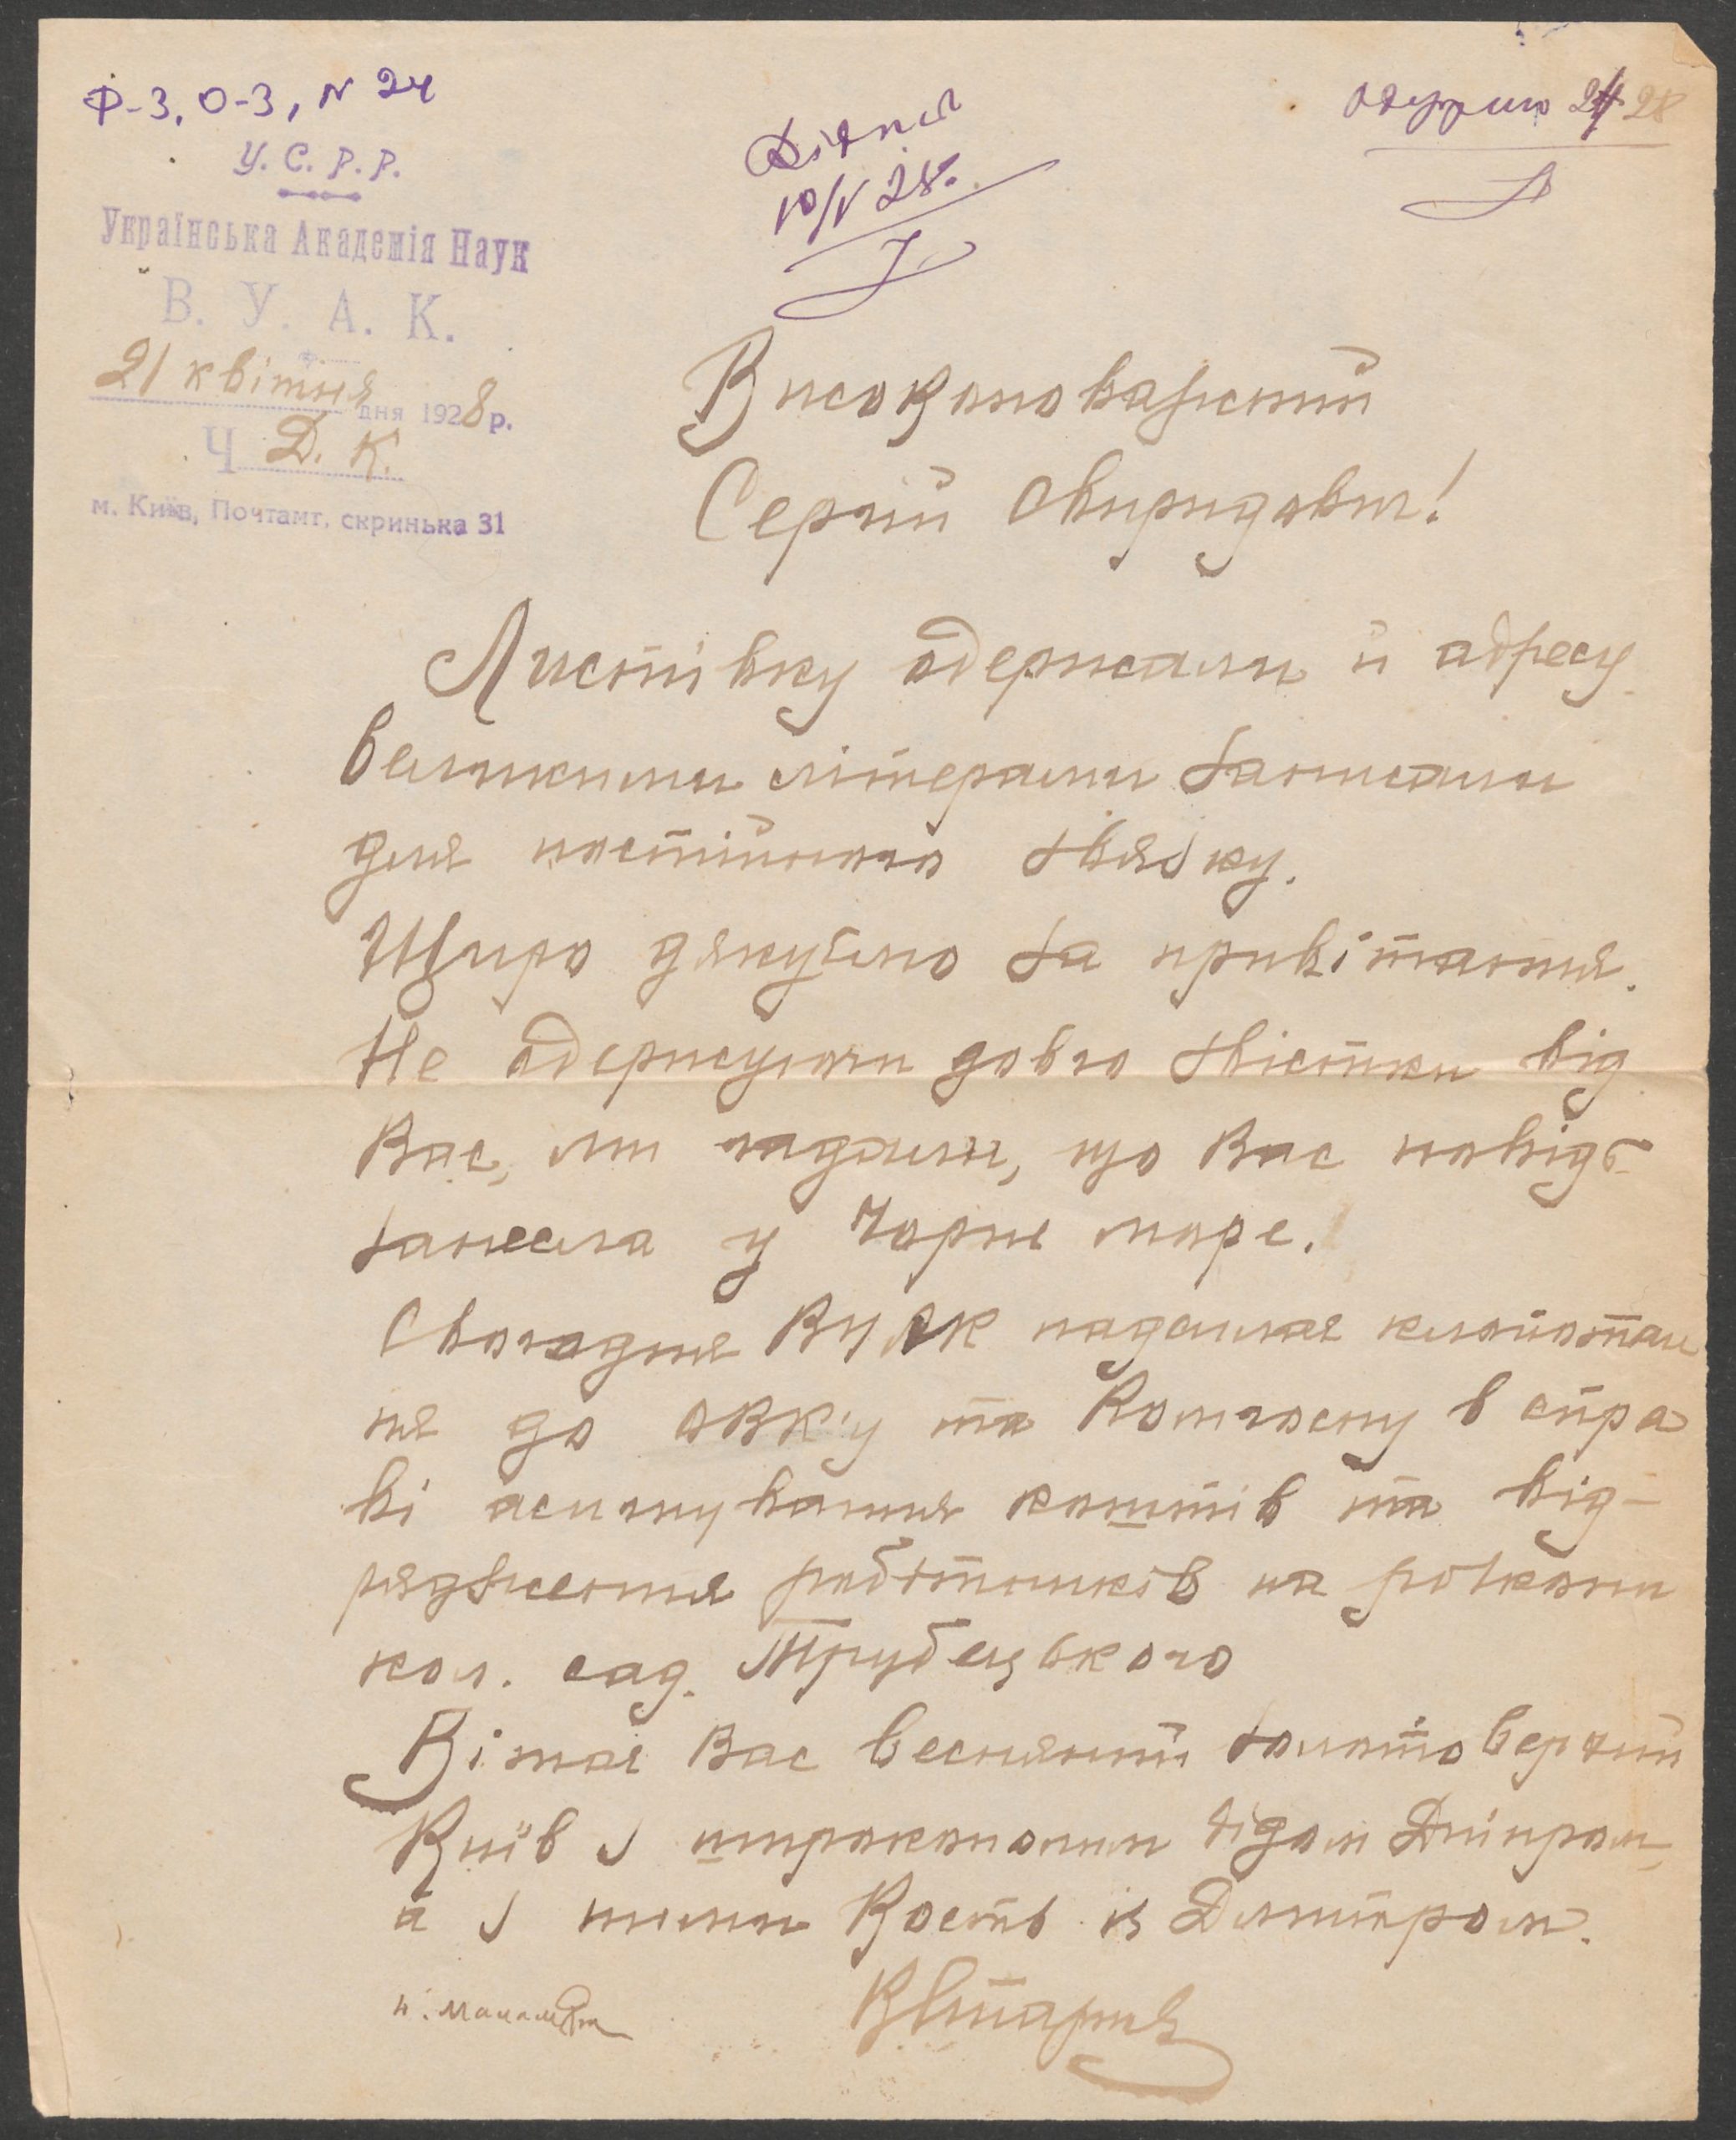 Ф-3, О-3, N 24
У. С. Р. Р.
Українська Академія Наук
В. У. А. К.
21 квітня дня 1928 р.
Ч Д. К.
м. Київ, Почтамт, скринька 31
10/V 28.
28
Високоповажний
Сергій Свиридович!
Листівку одержали й адресу
великими літерами записали
для постійного звязку.
Щиро дякуємо за привітання.
Не одержуючи довго звістки від
Вас, ми гадали, що Вас повідь
занесла у Чорне море.
Сьогодня ВУАК надсилає клопотан
ня до ОВК'у та Комгоспу в спра
ві асигнування коштів та від-
рядження робітників на розкопи
кол. сад. Трубецького
Вітає Вас весняний золотоверхий
Київ з широкополим дідом Дніпром,
а з ними Кость із Дмитром.